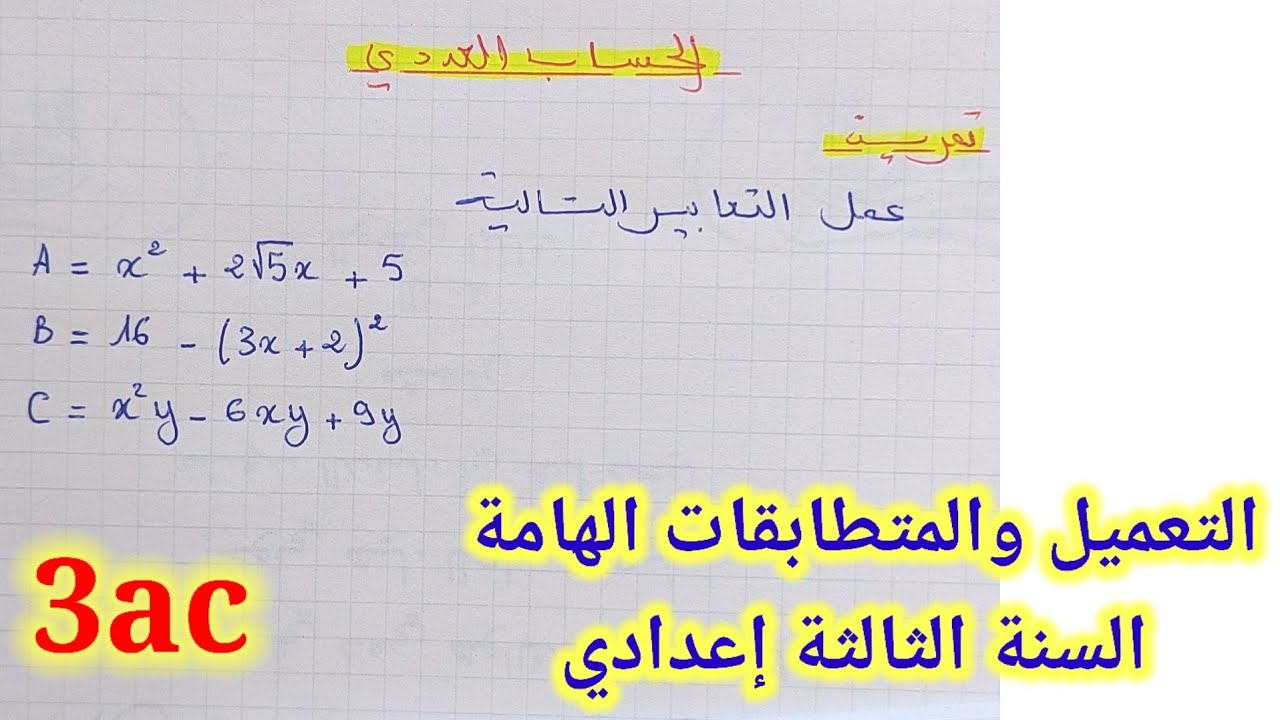 الحساب العددي
تمرين
عمل التعابير التالية
A = x² + 2√5x + 5
B = 16 - (3x + 2)²
C = x²y - 6xy + 9y
التعميل والمتطابقات الهامة
السنة الثالثة إعدادي
3ac